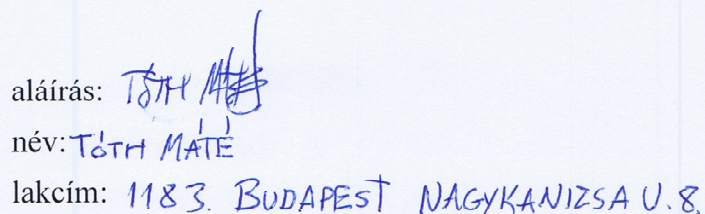 aláírás: TÓTH MÁTÉ
név: TÓTH MÁTÉ
lakcím: 1183. BUDAPEST NAGYKANIZSA U. 8.